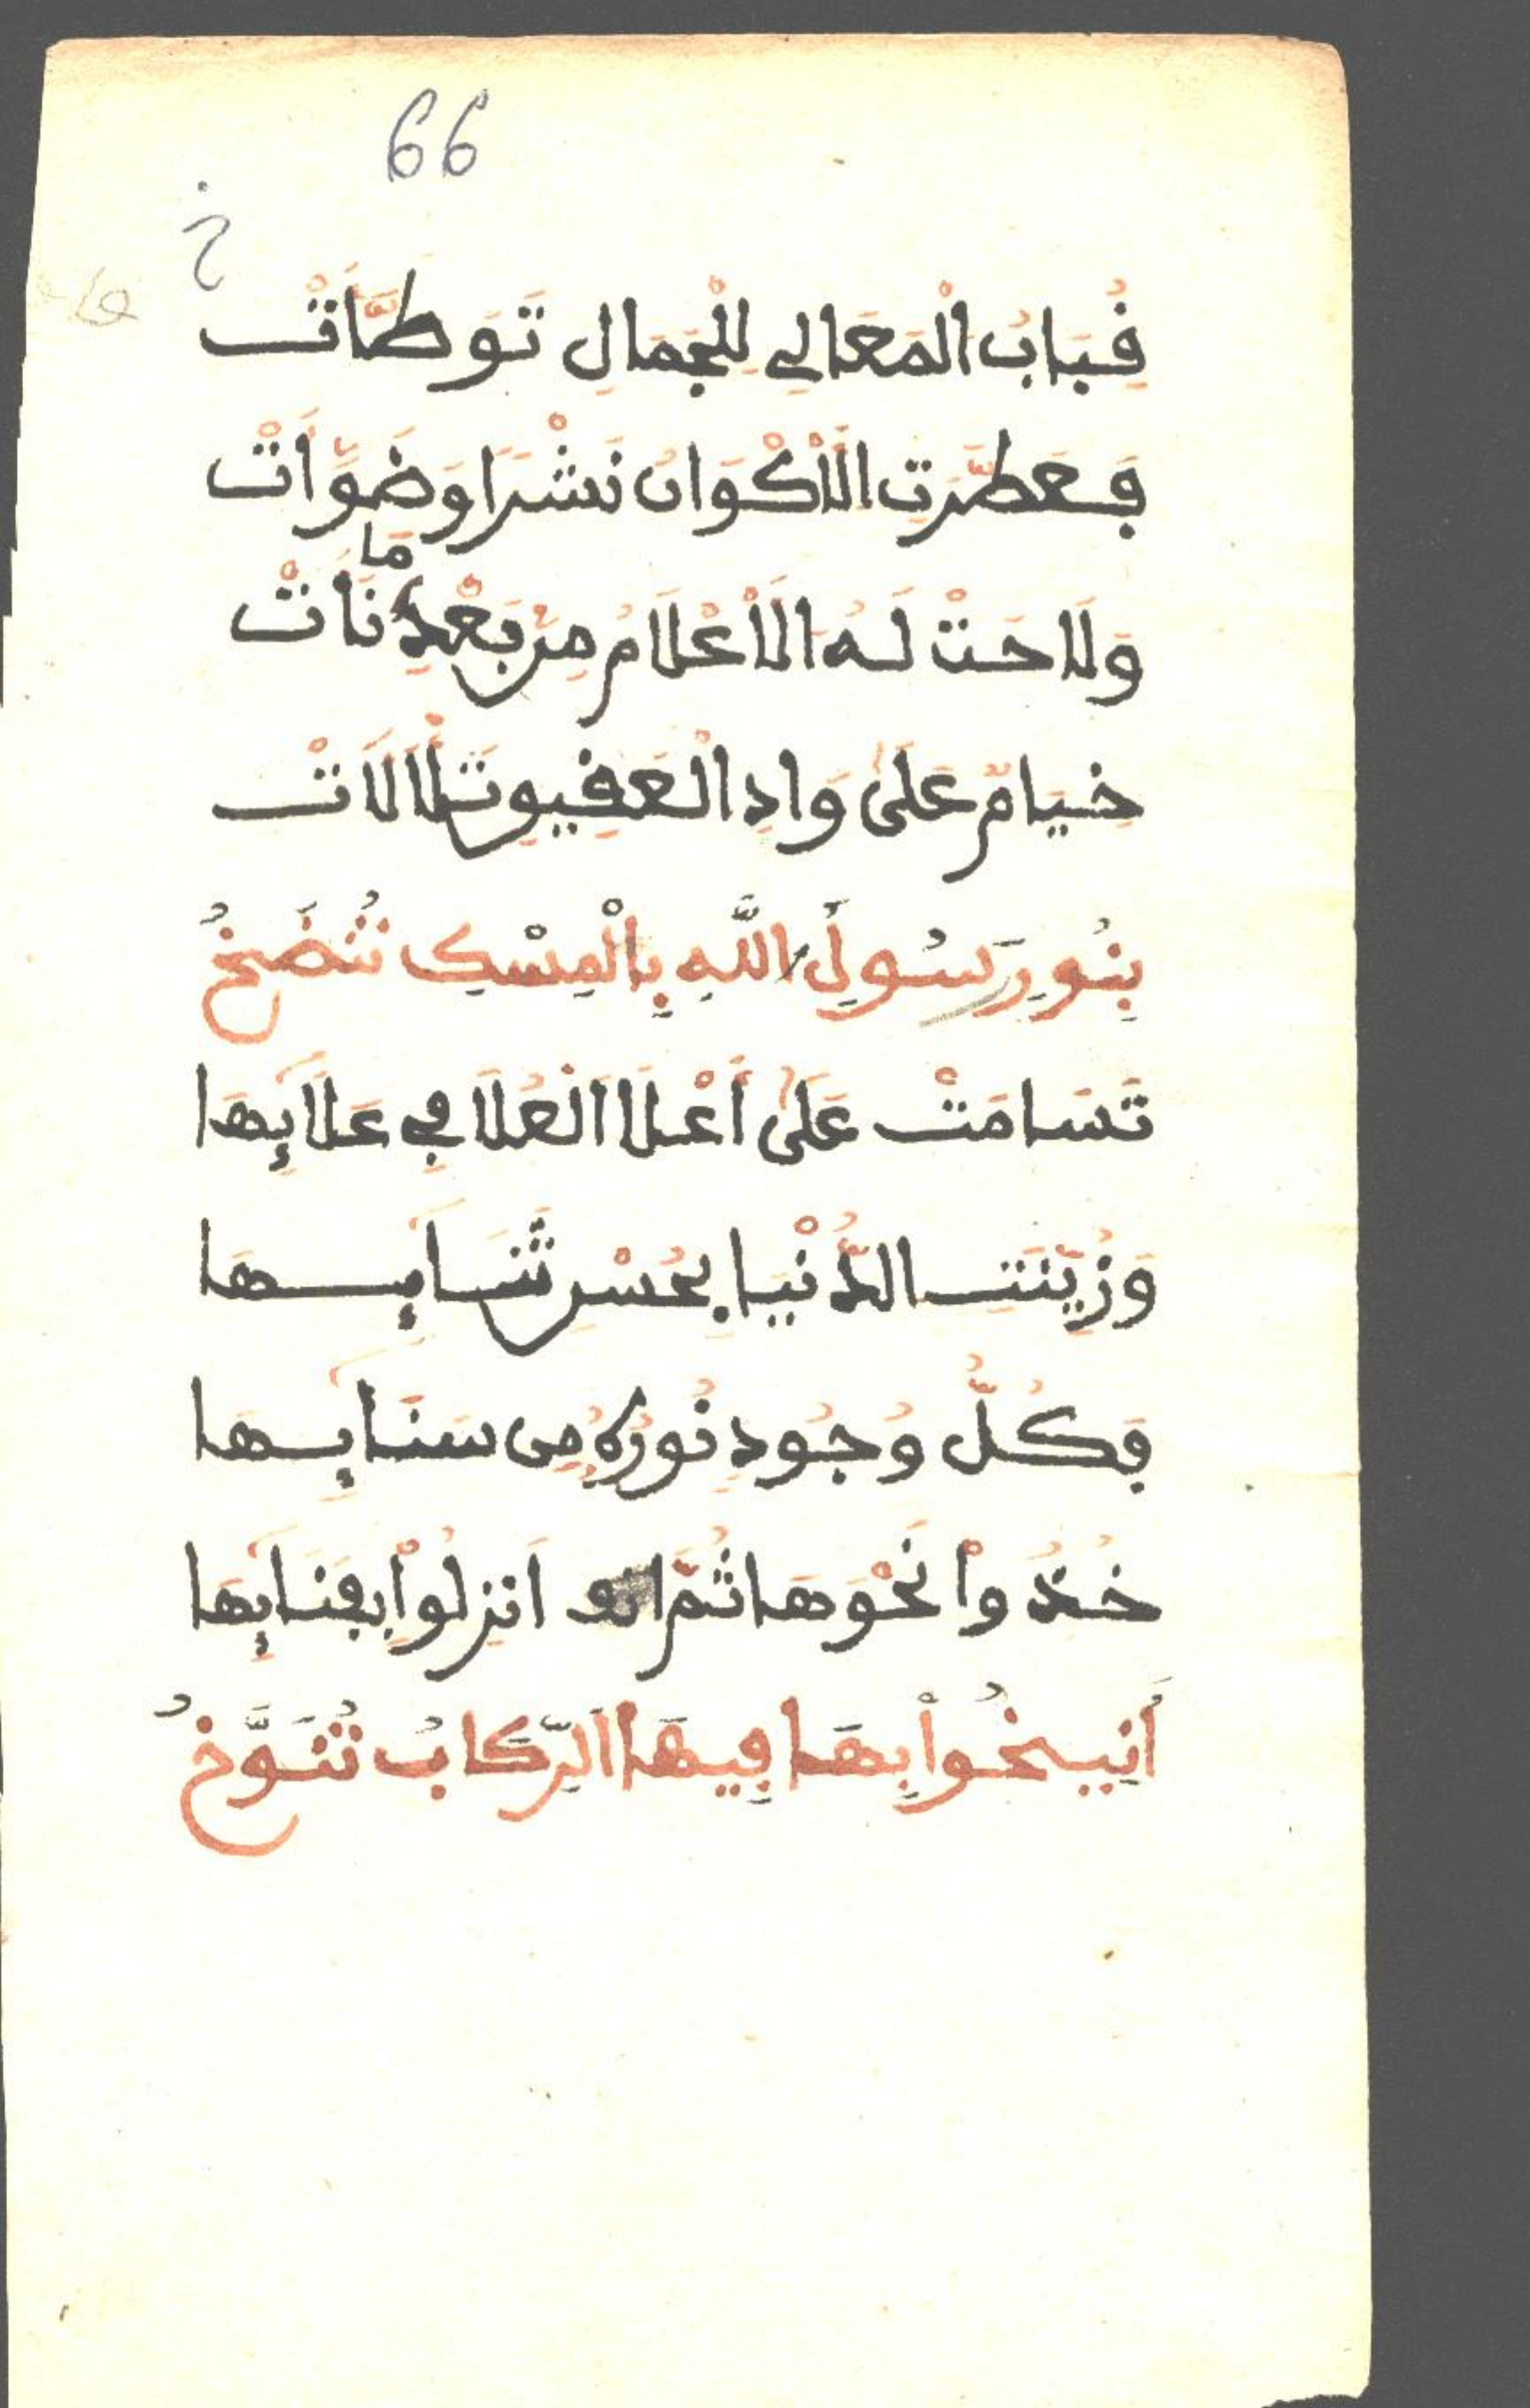 66
خ
قِبَابُ الْمَعَالِي لِلْجَمَالِ تَوَطَّأَتْ
فَعَطَّرَتِ الْأَكْوَانَ نَشْرًا وَضَوَّأَتْ
وَلَاحَتْ لَهُ الْأَعْلَامُ مِنْ بَعْدِ مَا نَأَتْ
خِيَامٌ عَلَى وَادِ الْعَقِيقِ تَلَأْلَأَتْ
بِنُورِ رَسُولِ اللَّهِ بِالْمِسْكِ تُنْضَخُ
تَسَامَتْ عَلَى أَعْلَا الْعُلَا فِي عَلَائِهَا
وَزُيِّنَتِ الدُّنْيَا بِحُسْنِ ثَنَائِهَا
فَكُلُّ وُجُودٍ نُورُهُ مِن سَنَائِهَا
خُذُواْ نَحْوَهَا ثُمَّ انزِلُواْ بِفِنَائِهَا
أَنِيخُواْ بِهَا فِيهَا الرِّكَابُ تُنَوَّخُ